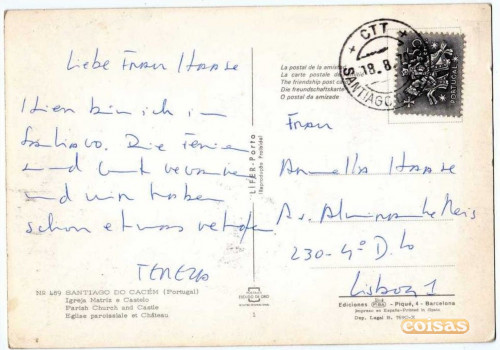 Liebe Frau Haase
Hier bin ich in
Santiago. Die Ferien
sind und
und wir haben
schon etwas
TEREZA
Nº 489 SANTIAGO DO CACÉM (Portugal)
Igreja Matriz e Castelo
Parish Church and Castle
Eglise paroissiale et Château
LIFER-Porto
(Reprodução Proibida)
ESCUDO DE ORO
1
La postal de la amis
La carte postale de
The friendship post ca
Die freundschaftskarte
O postal da amizade
CTT
18.8.
SANTIAGO
PORTUGAL
Frau
Haase
Av. Almirante Reis
230-4º D.to
Lisboa 1
Ediciones Piqué, 4 - Barcelona
Impreso en España-Printed in Spain
Dep. Legal B.
coisas